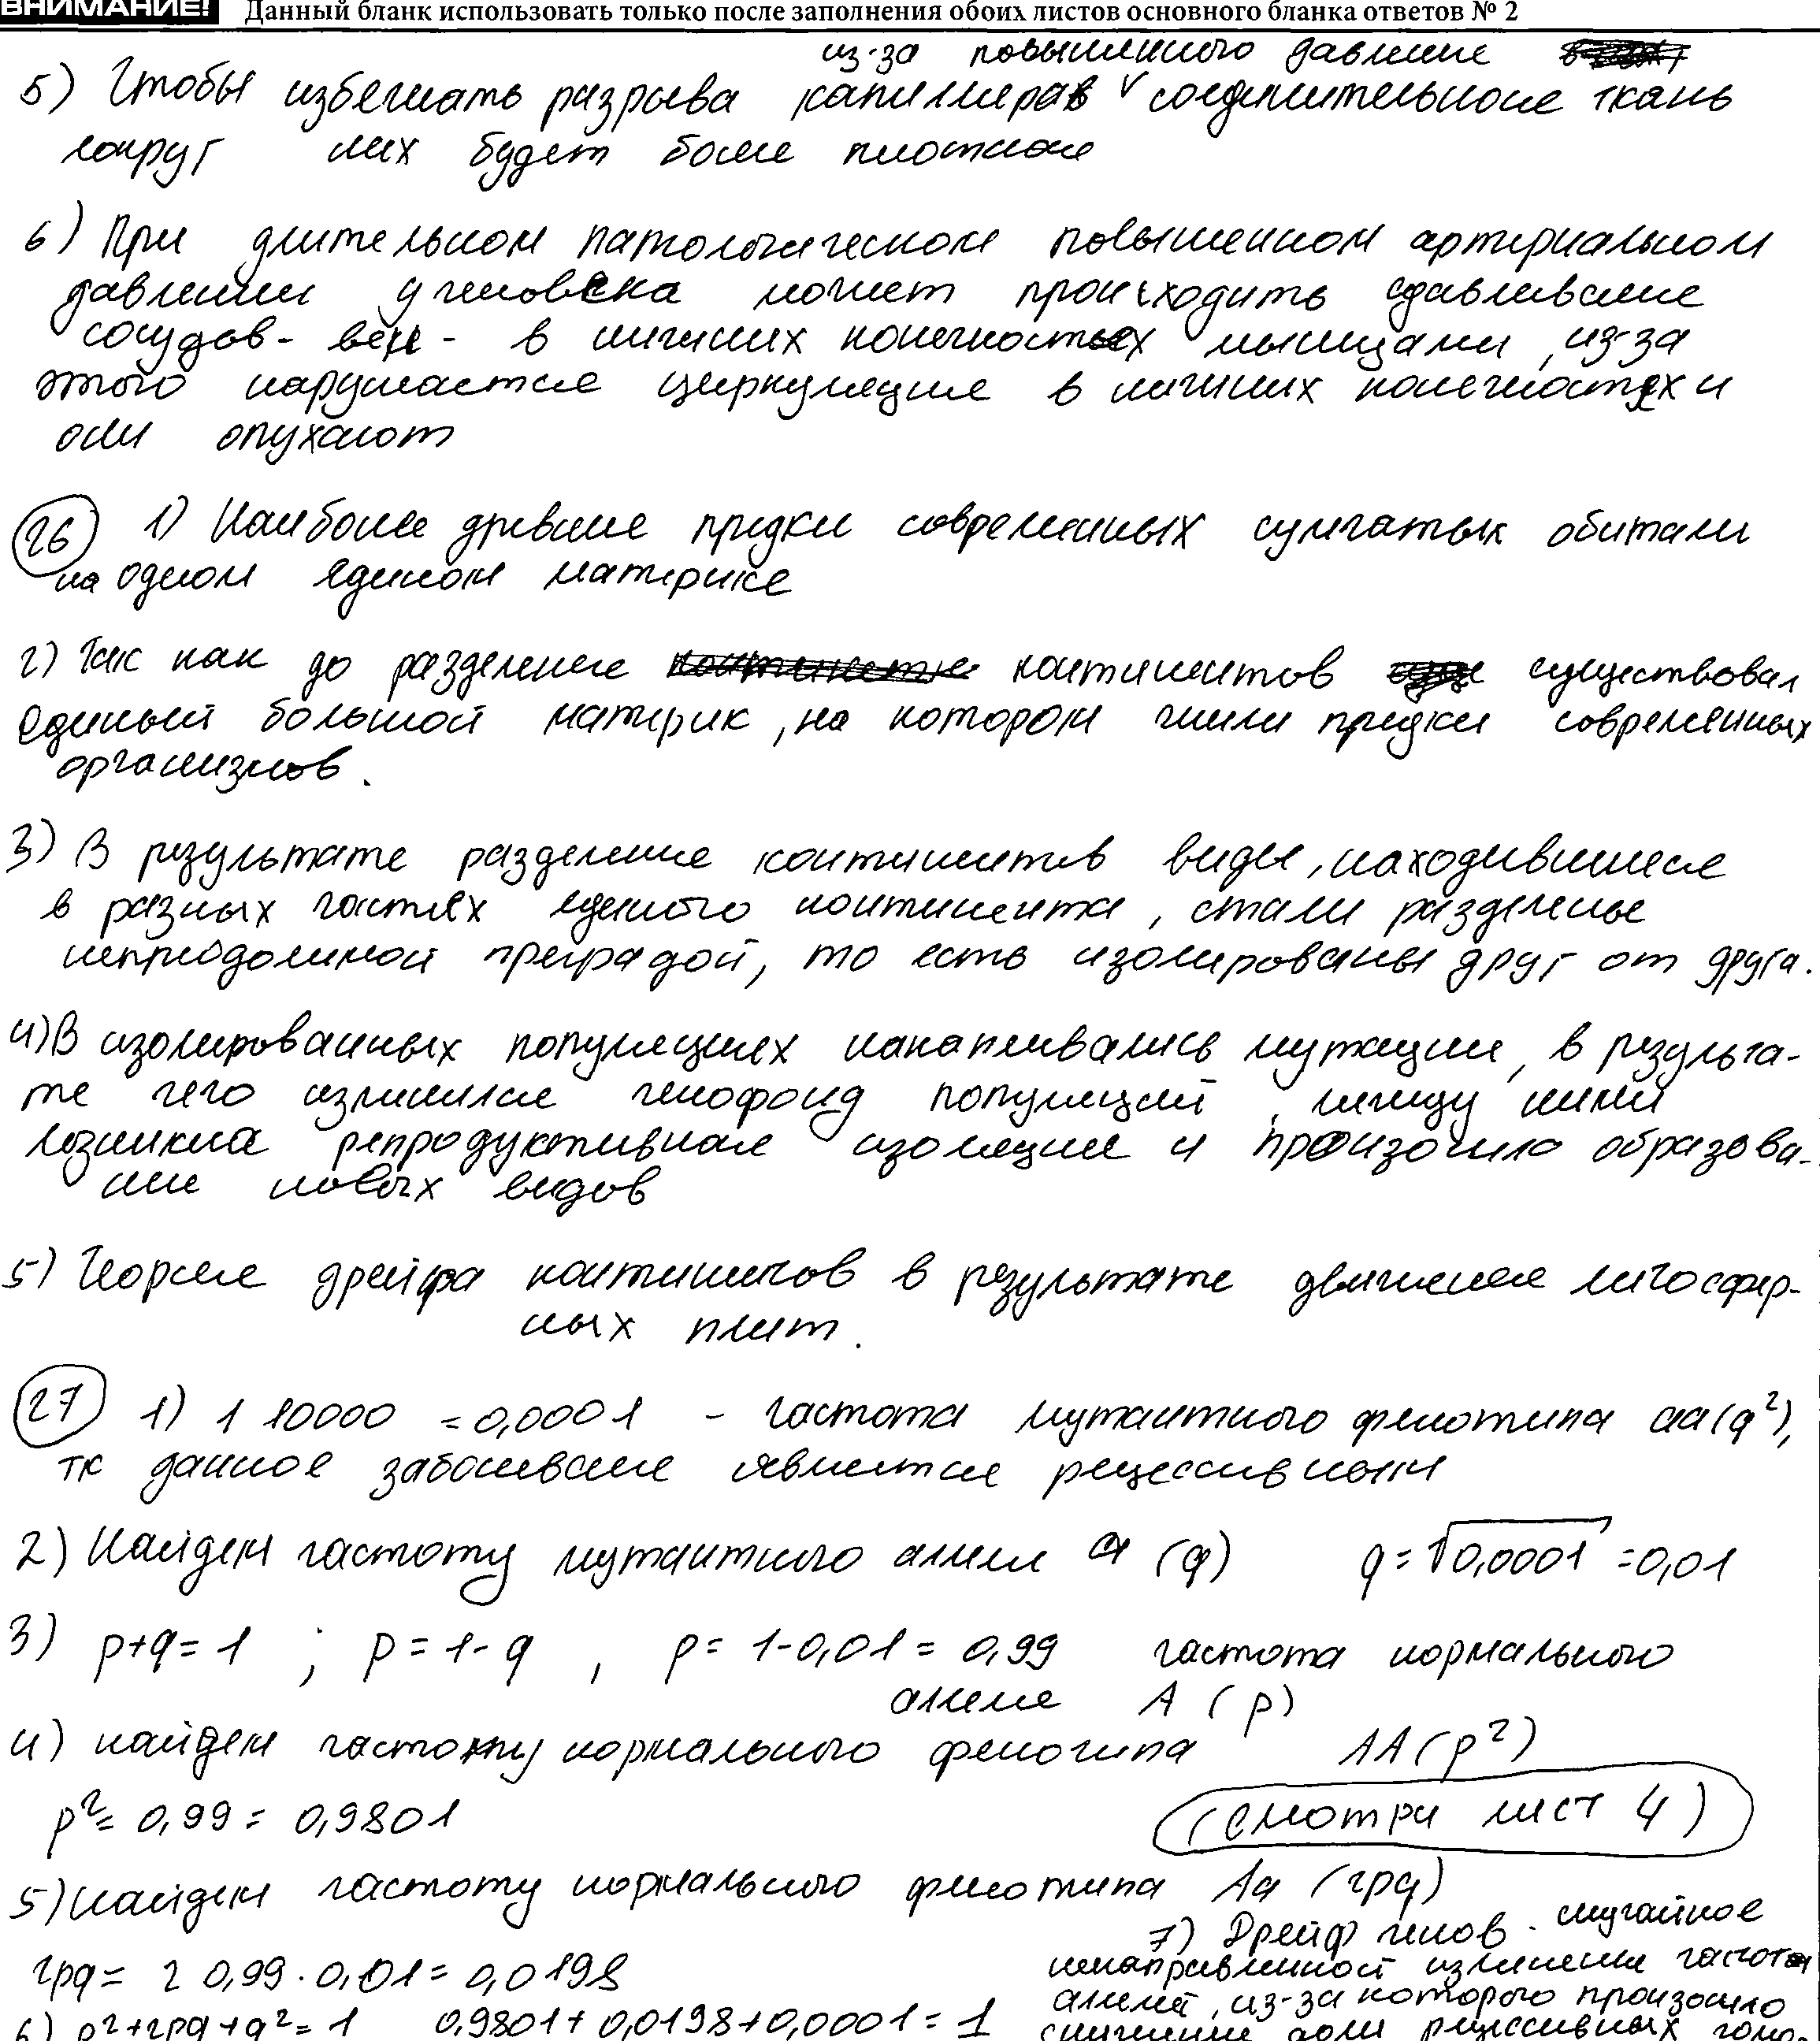 ВНИМАНИЕ! Данный бланк использовать только после заполнения обоих листов основного бланка ответов № 2
из-за повышенного давление
5) Чтобы избежать разрыва капилляров V соединительное ткань
вокруг них будет более плотная
6) При длительном патологическом повышенном артериальном
давлении у человека может происходить сдавливание
сосудов - вен - в нижних конечностях мышцами, из-за
этого нарушается циркуляция в нижних конечностях и
они опухают
26 1) Наиболее древние предки современных сумчатых обитали
на одном едином материке
2) Так как до разделение континентов существовал
единый большой материк, на котором жили предки современных
организмов.
3) В результате разделение континентов виды, находившиеся
в разных частях единого континента, стали разделены
непреодолимой преградой, то есть изолированы друг от друга.
4) В изолированных популяциях накапливались мутации, в результа-
те чего изменился генофонд популяций, между ними
возникла репродуктивная изоляция и произошло образова-
ние новых видов
5) Теория дрейфа континентов в результате движения литосфер-
ных плит.
27 1) 1 10000 = 0,0001 - частота мутантного фенотипа aa(q²),
тк данное заболевание является рецессивным
2) Найдем частоту мутантного аллеля a (q) q = √0,0001 = 0,01
3) p+q=1 ; p = 1-q , p = 1-0,01 = 0,99 частота нормального
аллеля A (p)
4) найдем частоту нормального фенотипа AA (p²)
p² = 0,99 = 0,9801 (смотри лист 4)
5) найдем частоту нормального фенотипа Aa (2pq)
2pq = 2 0,99 · 0,01 = 0,0198
6) p²+2pq+q² = 1 0,9801 + 0,0198 + 0,0001 = 1
7) Дрейф генов - случайное
ненаправленной изменение частоты
аллелей, из-за которого произошло
снижение доли рецессивных гомо-